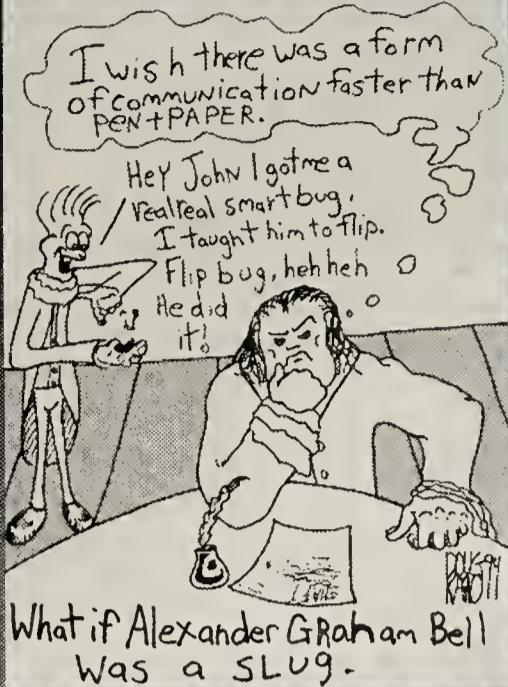 I wish there was a form
of communication faster than
PEN + PAPER.
Hey John I got me a
real real smart bug.
I taught him to flip.
Flip bug, heh heh
He did
it!
What if Alexander GRaham Bell
was a SLUG.